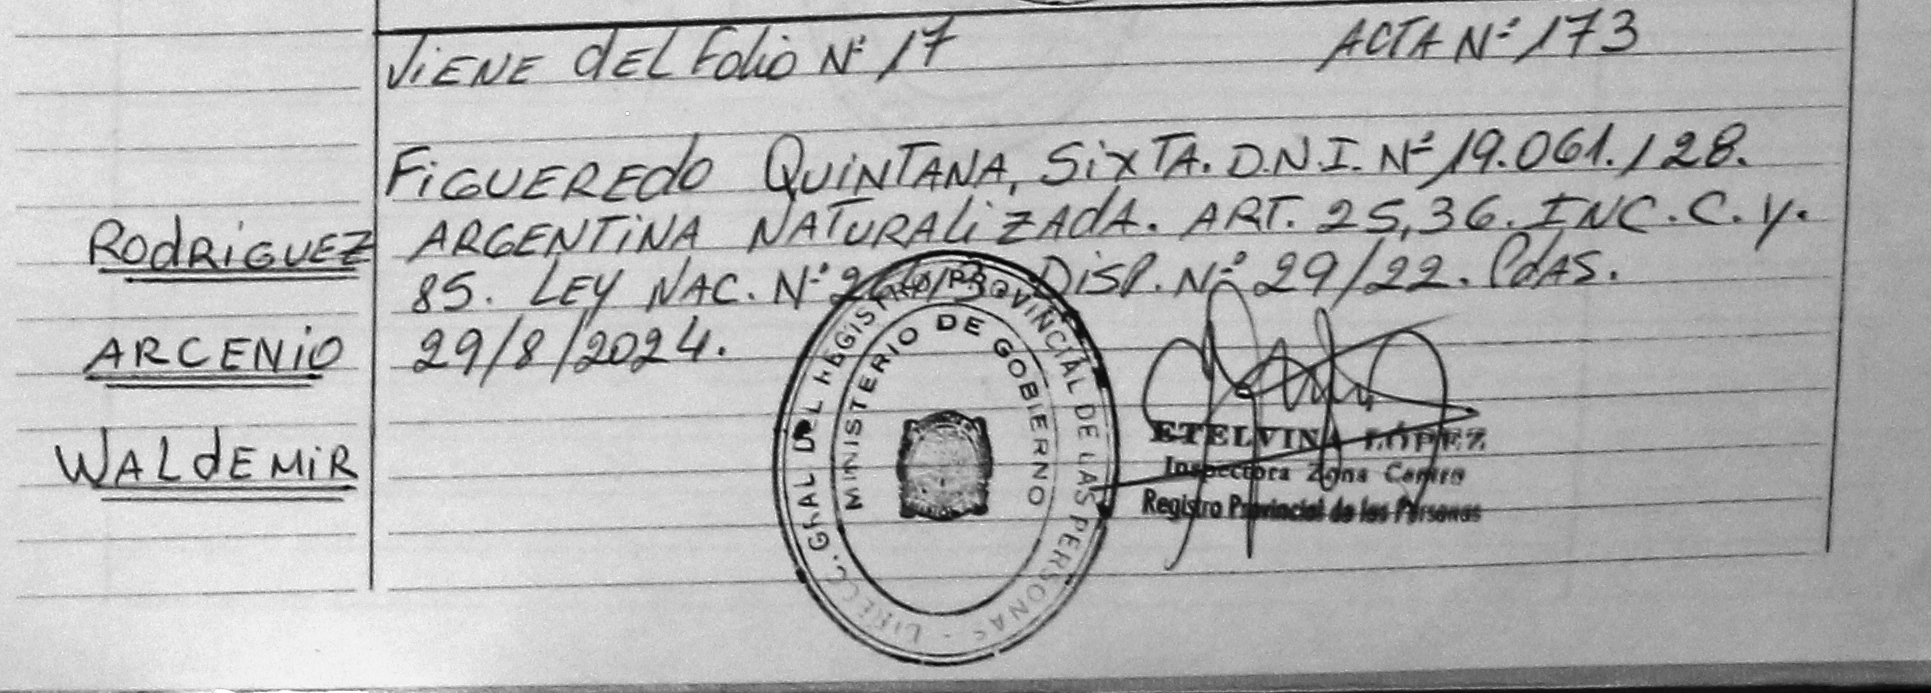 ViENE dEL Folio Nº 17
ACTA Nº 173
FiGUEREdo QUiNTANA, SixTA. D.N.I. Nº 19.061.128.
ARGENTiNA NATURALiZAdA. ART. 25,36. INC. C. y.
85. LEY NAC. Nº 26413. DiSP. Nº 29/22. PdAS.
29/8/2024.
RodRiGUEZ
ARCENiO
WALdEMiR
DIRECC. GRAL DEL REGISTRO PROVINCIAL DE LAS PERSONAS -
MINISTERIO DE GOBIERNO
ETELVINA LÓPEZ
Inspectora Zona Centro
Registro Provincial de las Personas